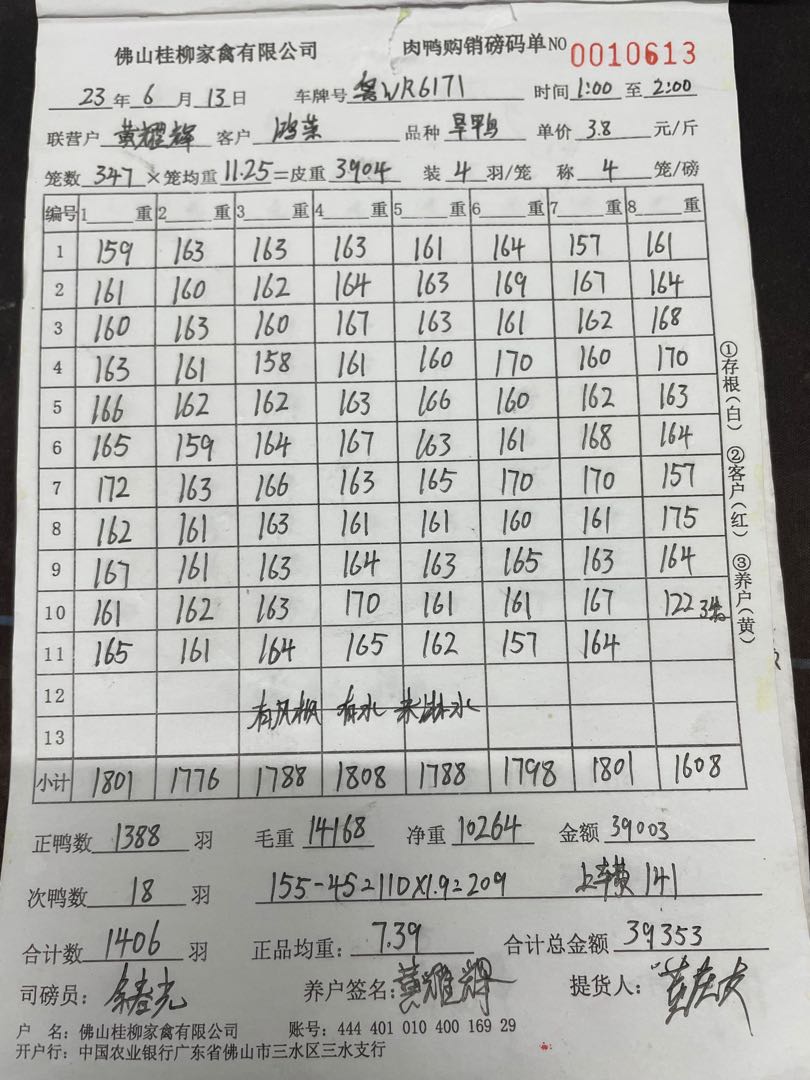 佛山桂柳家禽有限公司 肉鸭购销磅码单NO 0010613
23年6月13日 车牌号 WR6171 时间1:00至2:00
联营户 黄耀辉 客户 鸿荣 品种 旱鸭 单价 3.8 元/斤
笼数 347 ×笼均重 11.25 =皮重 3904 装 4 羽/笼 称 4 笼/磅
编号 1 重 2 重 3 重 4 重 5 重 6 重 7 重 8 重
1 159 163 163 163 161 164 157 161
2 161 160 162 164 163 169 167 164
3 160 163 160 167 163 161 162 168
4 163 161 158 161 160 170 160 170
5 166 162 162 163 166 160 162 163
6 165 159 164 167 163 161 168 164
7 172 163 166 163 165 170 170 157
8 162 161 163 161 161 160 161 175
9 167 161 163 164 163 165 163 164
10 161 162 163 170 161 161 167 122 3
11 165 161 164 165 162 157 164
12
有风机 有水 未淋水
13
小计 1801 1776 1788 1808 1788 1798 1801 1608
①存根(白) ②客户(红) ③养户(黄)
正鸭数 1388 羽 毛重 14168 净重 10264 金额 39003
次鸭数 18 羽 155-45=110×1.9=209 上车费 141
合计数 1406 羽 正品均重: 7.39 合计总金额 39353
司磅员: 余春光 养户签名: 黄耀辉 提货人:
户 名: 佛山桂柳家禽有限公司 账号: 444 401 010 400 169 29
开户行: 中国农业银行广东省佛山市三水区三水支行